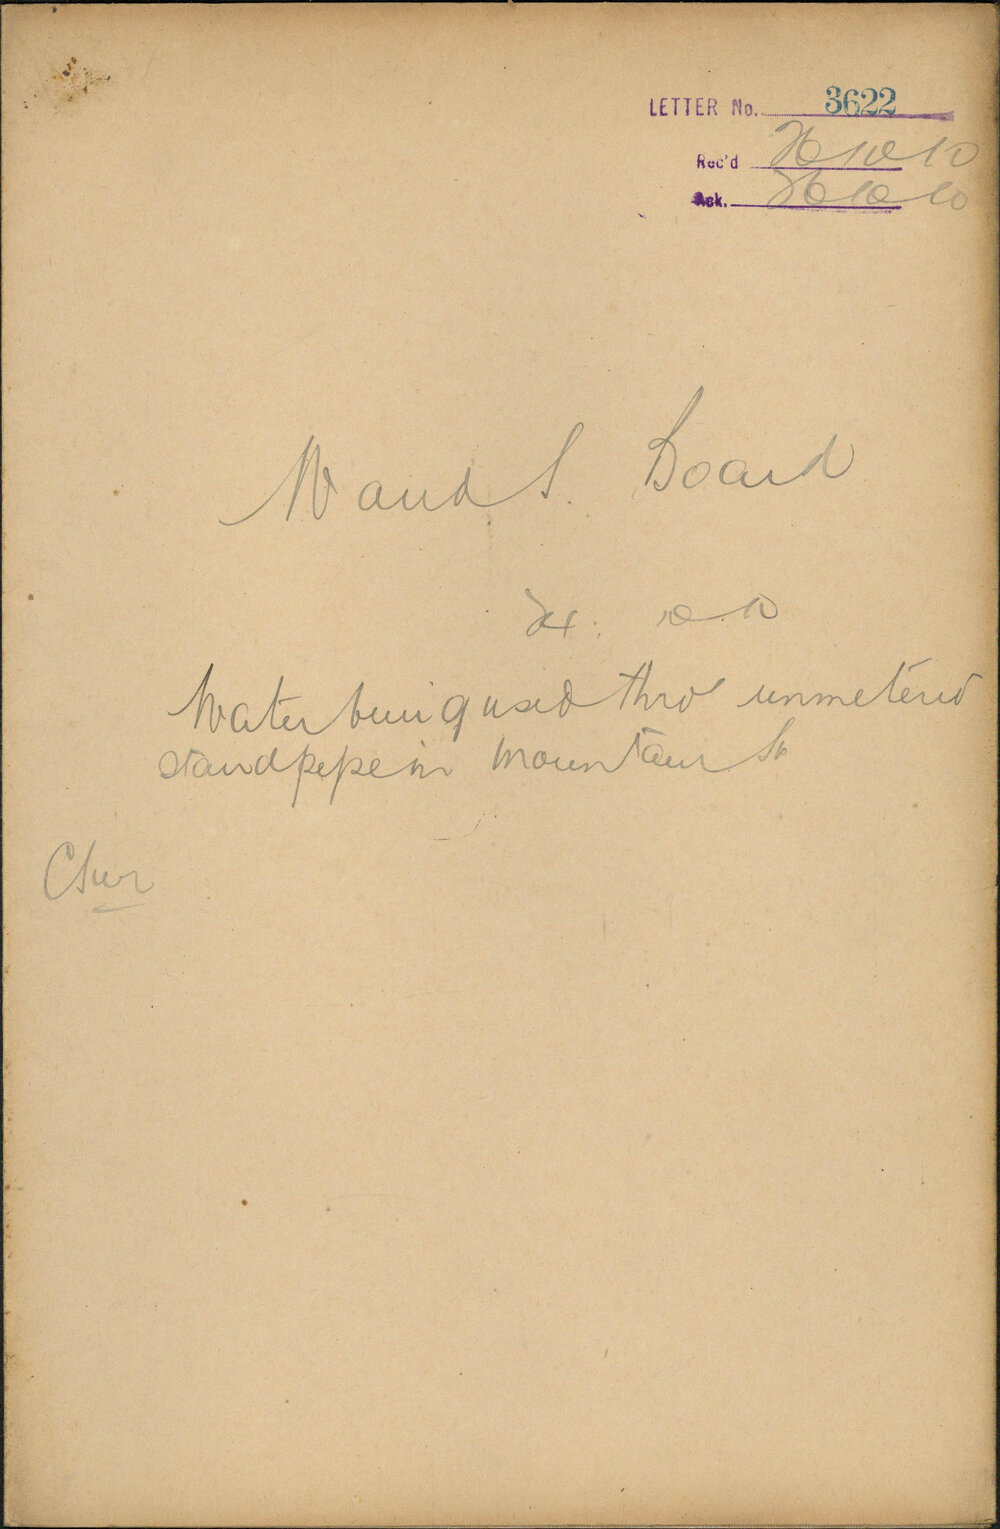 LETTER No. 3622
Rec'd 26 10 10
Ack. 26 10 10
W and S. Board
24. 10. 10
Water being used thro' unmetered
standpipe in Mountain St